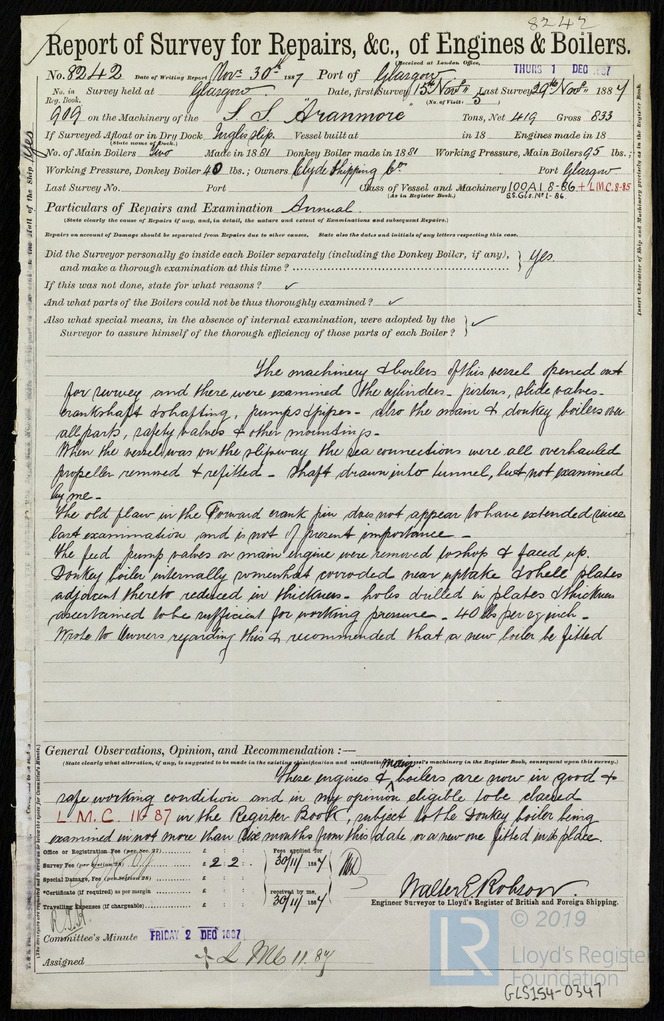 8242
Report of Survey for Repairs, &c., of Engines & Boilers.
(Received at London Office,
THURS 1 DEC 1887
No. 8242 Date of Writing Report Novr 30th 1887 Port of Glasgow
No. in Reg. Book. Survey held at Glasgow Date, first Survey 15th Novr Last Survey 29th Novr 1887
(No. of Visits 5)
909 on the Machinery of the S.S. "Aranmore" Tons, Net 419 Gross 833
If Surveyed Afloat or in Dry Dock Inglis slip. Vessel built at in 18 Engines made in 18
(State name of Dock.)
No. of Main Boilers Two Made in 1881 Donkey Boiler made in 1881 Working Pressure, Main Boilers 95 lbs.;
Working Pressure, Donkey Boiler 40 lbs.; Owners Clyde Shipping Co. Port Glasgow
Last Survey No. Port Class of Vessel and Machinery 100A1 8-86 + L.M.C. 8.85
(As in Register Book.) SS.Gls.No1-86
Particulars of Repairs and Examination Annual
(State clearly the cause of Repairs if any, and, in detail, the nature and extent of Examinations and subsequent Repairs.)
Repairs on account of Damage should be separated from Repairs due to other causes. State also the dates and initials of any letters respecting this case.
Did the Surveyor personally go inside each Boiler separately (including the Donkey Boiler, if any),
and make a thorough examination at this time? Yes.
If this was not done, state for what reasons? ✓
And what parts of the Boilers could not be thus thoroughly examined? ✓
Also what special means, in the absence of internal examination, were adopted by the
Surveyor to assure himself of the thorough efficiency of those parts of each Boiler? ✓
The machinery & boilers of this vessel opened out
for survey and there were examined the cylinders - pistons, slide valves -
crankshaft & shafting, pumps & pipes - also the main & donkey boilers over
all parts, safety valves & other mountings -
When the vessel was on the slipway the sea connections were all overhauled
propeller removed & refitted - shaft drawn into tunnel, but not examined
by me -
The old flaw in the Forward crank pin does not appear to have extended since
last examination and is not of present importance -
The feed pump valves on main engine were removed to shop & faced up.
Donkey boiler internally somewhat corroded near uptake & shell plates
adjacent thereto reduced in thickness - holes drilled in plates & thickness
ascertained to be sufficient for working pressure - 40 lbs per sq inch -
Wrote to Owners regarding this & recommended that a new boiler be fitted
General Observations, Opinion, and Recommendation :—
(State clearly what alteration, if any, is suggested to be made in the existing classification and notification of vessel's machinery in the Register Book, consequent upon this survey.)
These engines & main boilers are now in good &
safe working condition and in my opinion eligible to be classed
L.M.C. 11-87 in the Register Book, subject to the Donkey boiler being
examined in not more than six months from this date or a new one fitted in its place.
Office or Registration Fee (per Sec. 27) £ Fees applied for
Survey Fee (per Section 28) £ 2.2. 30/11/1887
Special Damage, Fee (per Section 28) £
*Certificate (if required) as per margin £ received by me,
Travelling Expenses (if chargeable) £ 30/11/1887
Walter E Robson.
Engineer Surveyor to Lloyd's Register of British and Foreign Shipping.
Committee's Minute FRIDAY 2 DEC 1887
Assigned + L M C 11.87
Insert Character of Ship and Machinery precisely as in the Register Book.
© 2019
LR Lloyd's Register Foundation
GLS154-0347